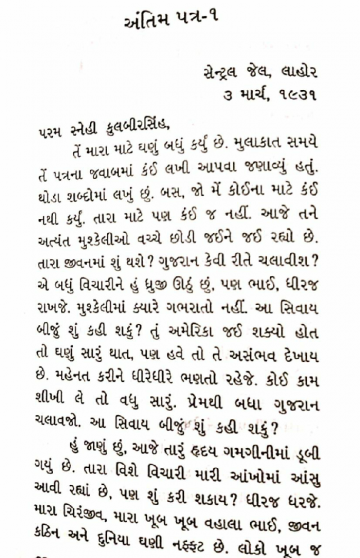 અંતિમ પત્ર-૧
સેન્ટ્રલ જેલ, લાહોર
૩ માર્ચ, ૧૯૩૧
પરમ સ્નેહી કુલબીરસિંહ,
તેં મારા માટે ઘણું બધું કર્યું છે. મુલાકાત સમયે
તેં પત્રના જવાબમાં કંઈ લખી આપવા જણાવ્યું હતું.
થોડા શબ્દોમાં લખું છું. બસ, જો મેં કોઈના માટે કંઈ
નથી કર્યું. તારા માટે પણ કંઈ જ નહીં. આજે તને
અત્યંત મુશ્કેલીઓ વચ્ચે છોડી જઈને જઈ રહ્યો છે.
તારા જીવનમાં શું થશે? ગુજરાન કેવી રીતે ચલાવીશ?
એ બધું વિચારીને હું ધ્રુજી ઊઠું છું, પણ ભાઈ, ધીરજ
રાખજે. મુશ્કેલીમાં ક્યારે ગભરાતો નહીં. આ સિવાય
બીજું શું કહી શકું? તું અમેરિકા જઈ શક્યો હોત
તો ઘણું સારું થાત, પણ હવે તો તે અસંભવ દેખાય
છે. મહેનત કરીને ધીરેધીરે ભણતો રહેજે. કોઈ કામ
શીખી લે તો વધુ સારું. પ્રેમથી બધા ગુજરાન
ચલાવજો. આ સિવાય બીજું શું કહી શકું?
હું જાણું છું, આજે તારું હૃદય ગમગીનીમાં ડૂબી
ગયું છે. તારા વિશે વિચારી મારી આંખોમાં આંસુ
આવી રહ્યાં છે, પણ શું કરી શકાય? ધીરજ ધરજે.
મારા ચિરંજીવ, મારા ખૂબ ખૂબ વહાલા ભાઈ, જીવન
કઠિન અને દુનિયા ઘણી નફ્ફટ છે. લોકો ખૂબ જ